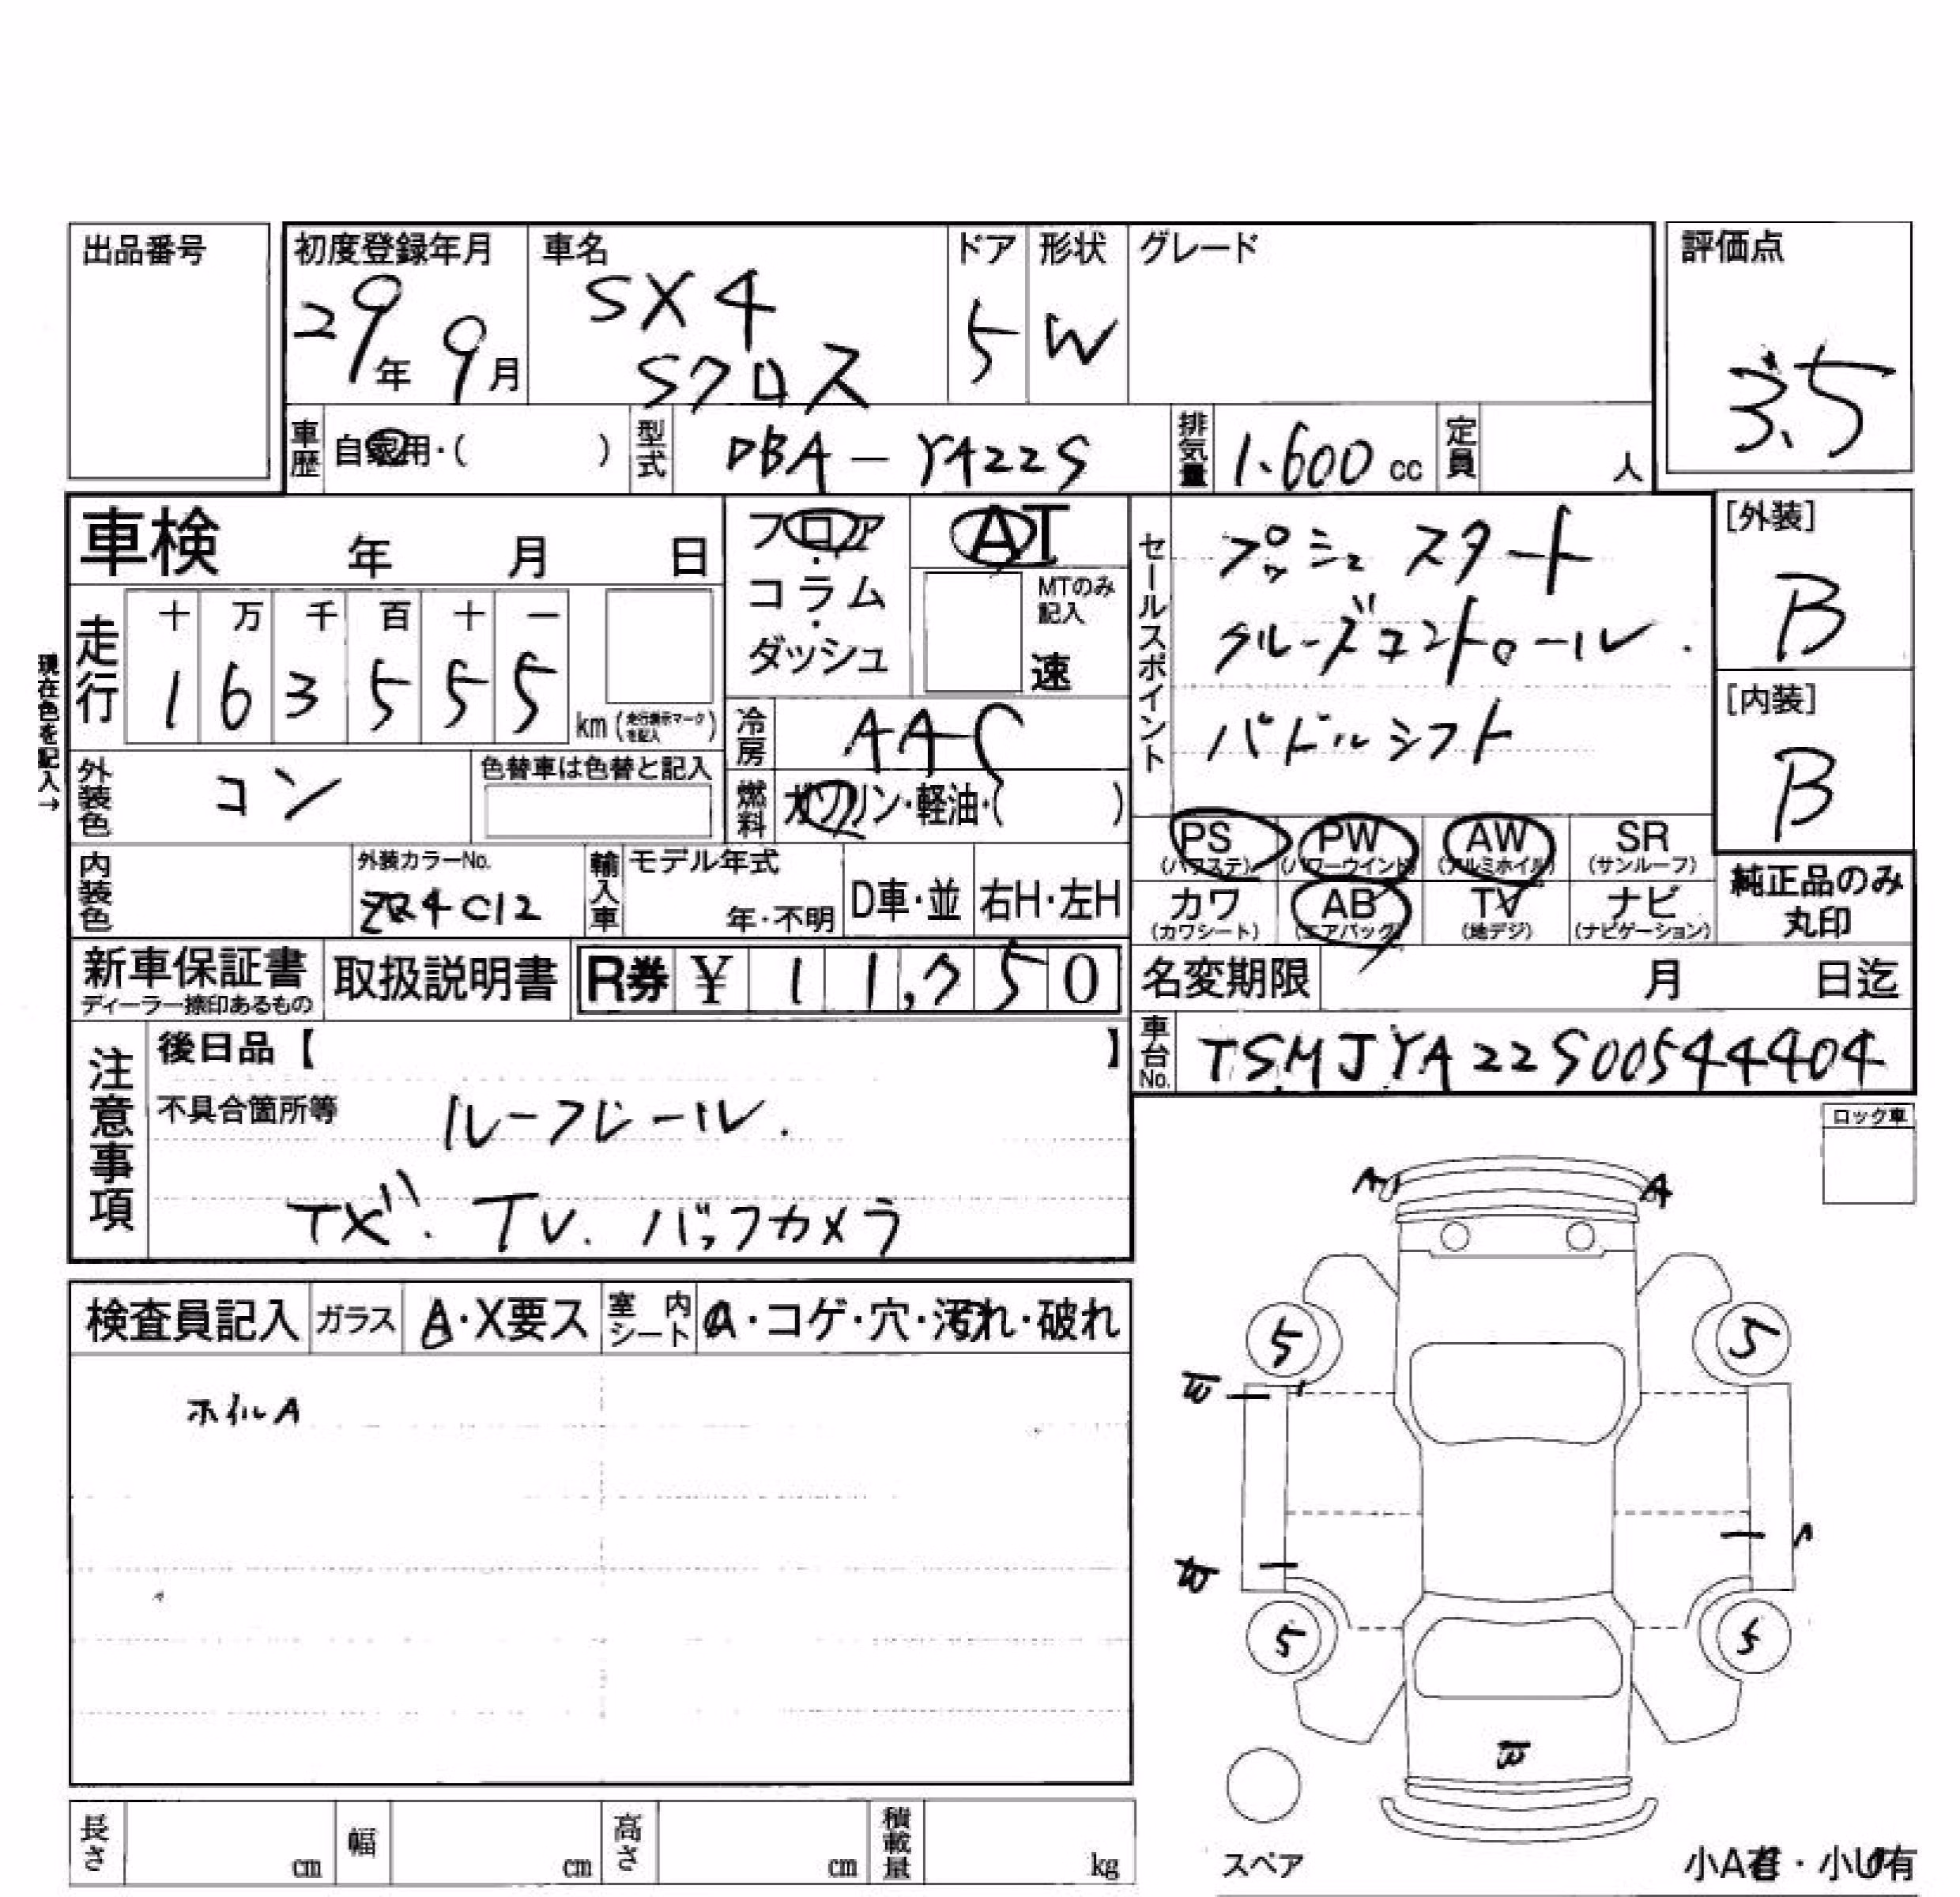 出品番号
初度登録年月
29年 9月
車名
SX4
Sクロス
ドア
5
形状
W
グレード
評価点
3.5
車歴
自家用・( )
型式
DBA-YA22S
排気量
1.600 cc
定員
人
車検 年 月 日
フロア
・
コラム
・
ダッシュ
AT
MTのみ
記入
速
セールスポイント
プッシュスタート
クルーズコントロール.
パドルシフト
[外装]
B
[内装]
B
現在色を記入→
走行
十 万 千 百 十 一
1 6 3 5 5 5
km (走行表示マークを記入)
冷房
AAC
外装色
コン
色替車は色替と記入
燃料
ガソリン・軽油・( )
PS
(パワステ)
PW
(パワーウインド)
AW
(アルミホイル)
SR
(サンルーフ)
カワ
(カワシート)
AB
(エアバッグ)
TV
(地デジ)
ナビ
(ナビゲーション)
純正品のみ
丸印
内装色
外装カラーNo.
C12
輸入車
モデル年式
年・不明
D車・並
右H・左H
新車保証書
ディーラー捺印あるもの
取扱説明書
R券 ¥ 11,750
名変期限 月 日迄
車台No.
TSMJYA22S00544404
注意事項
後日品【 】
不具合箇所等
ルーフレール.
TV. バックカメラ
ロック車
検査員記入
ガラス
A・X要ス
室内シート
・コゲ・穴・汚れ・破れ
ホイルA
A
A
5
5
5
5
スペア
小A有・小U有
長さ
cm
幅
cm
高さ
cm
積載量
kg